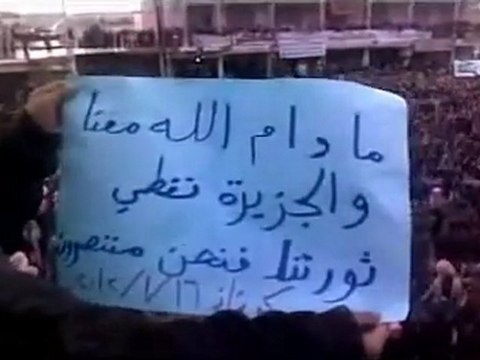 ما دام الله معنا
والجزيرة تغطي
ثورتنا فنحن منتصرون
كرناز ٢٠١٢/١/١٦